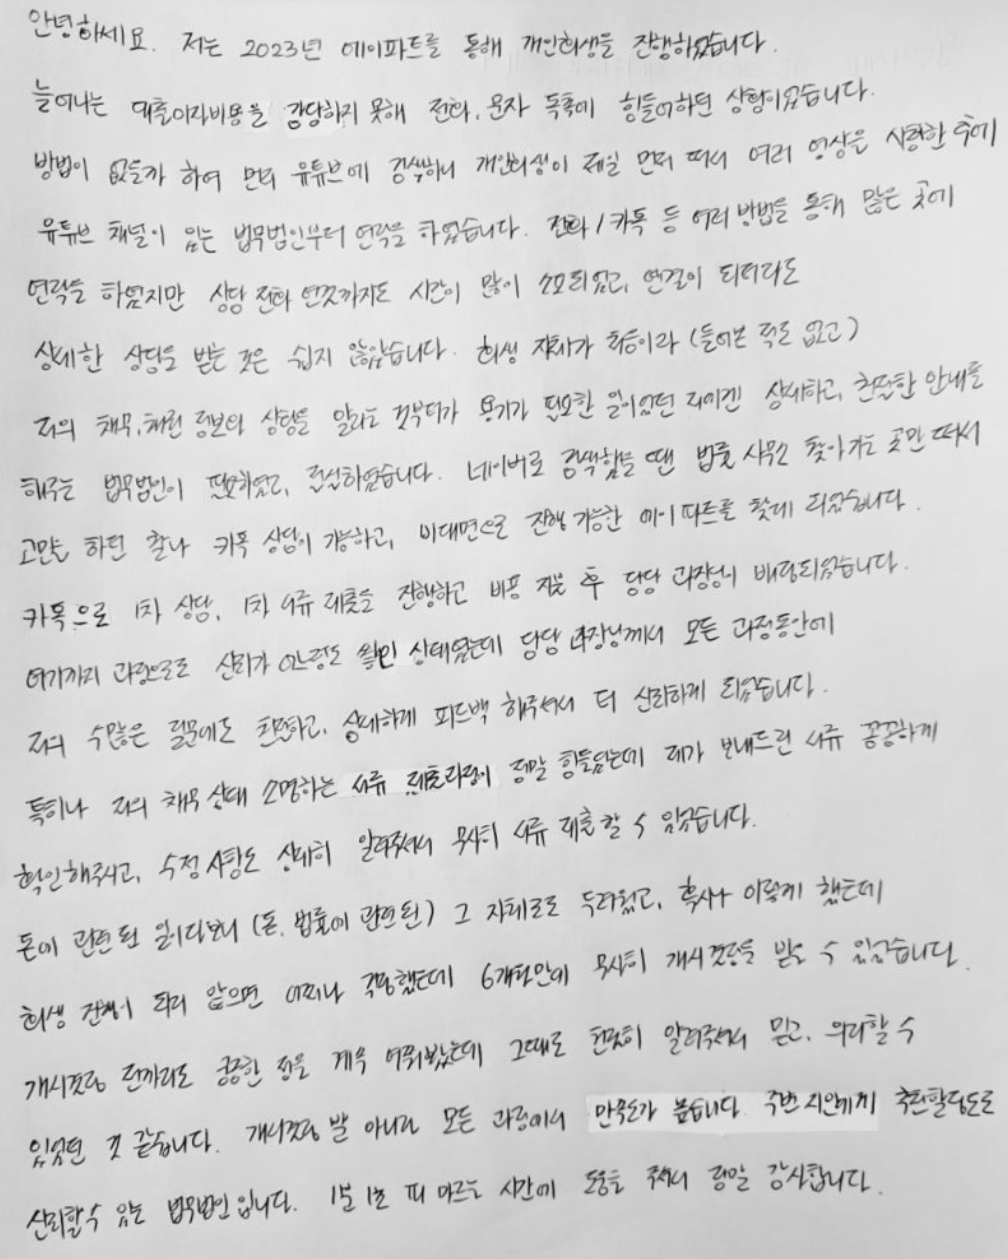 안녕하세요. 저는 2023년 에이파트를 통해 개인회생을 진행하였습니다.
늘어나는 대출이자비용을 감당하지 못해 전화, 문자 독촉에 힘들어하던 상황이었습니다.
방법이 없을까 하여 먼저 유튜브에 검색하니 개인회생이 제일 먼저 떠서 여러 영상을 시청한 후에
유튜브 채널이 있는 법무법인부터 연락을 하였습니다. 전화/카톡 등 여러 방법을 통해 많은 곳에
연락을 하였지만 상담 전화 연결까지도 시간이 많이 소요되었고, 연결이 되더라도
상세한 상담을 받는 것은 쉽지 않았습니다. 회생 자체가 처음이라 (들어본 적도 없고)
저의 채무, 채권 정보와 상황을 알리는 것부터가 용기가 필요한 일이었던 저에겐 상세하고, 친절한 안내를
해주는 법무법인이 필요하였고, 절실하였습니다. 네이버로 검색했을 땐 법률 사무소 찾아가는 곳만 떠서
고민을 하던 찰나 카톡 상담이 가능하고, 비대면으로 진행 가능한 에이파트를 찾게 되었습니다.
카톡으로 1차 상담, 1차 서류 제출을 진행하고 비용 지불 후 담당 과장님이 배정되었습니다.
여기까지 과정으로도 신뢰가 어느정도 쌓인 상태였는데 담당 과장님께서 모든 과정동안에
저의 수많은 질문에도 친절하고, 상세하게 피드백 해주셔서 더 신뢰하게 되었습니다.
특히나 저의 채무 상태 소명하는 서류 제출과정이 정말 힘들었는데 제가 보내드린 서류 꼼꼼하게
확인해주시고, 수정 사항도 상세히 알려주셔서 무사히 서류 제출할 수 있었습니다.
돈에 관련된 일이다보니 (돈, 법률에 관련된) 그 자체로도 두려웠고, 혹시나 이렇게 했는데
회생 진행이 되지 않으면 어쩌나 걱정했는데 6개월안에 무사히 개시결정을 받을 수 있었습니다.
개시결정 전까지도 궁금한 점을 계속 여쭤봤는데 그때도 친절히 알려주셔서 믿고, 의뢰할 수
있었던 것 같습니다. 개시결정 뿐 아니라 모든 과정에서 만족도가 높습니다. 주변 지인에게 추천할정도로
신뢰할수 있는 법무법인 입니다. 1분 1초 피 마르는 시간에 도움을 주셔서 정말 감사합니다.